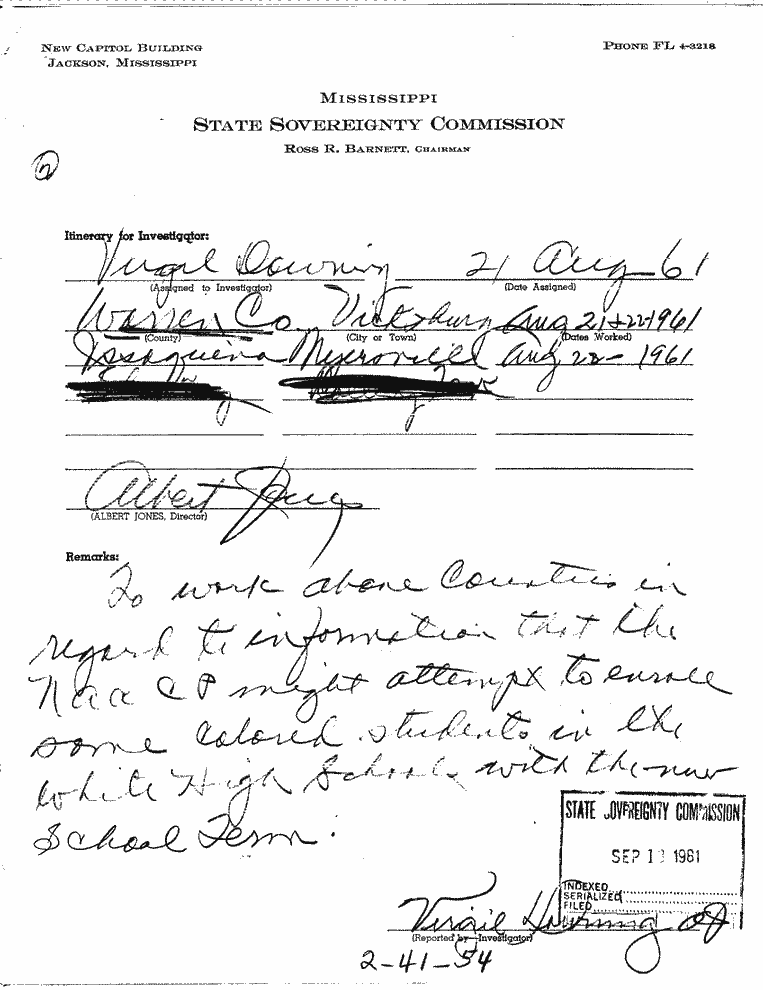 NEW CAPITOL BUILDING
JACKSON, MISSISSIPPI
PHONE FL 4-3218
MISSISSIPPI
STATE SOVEREIGNTY COMMISSION
ROSS R. BARNETT, CHAIRMAN
2
Itinerary for Investigator:
Virgil Downing 21 Aug 61
(Assigned to Investigator) (Date Assigned)
Warren Co. Vicksburg Aug 21+22-1961
(County) (City or Town) (Dates Worked)
Issaquena Myersville Aug 22- 1961
Albert Jones
(ALBERT JONES, Director)
Remarks:
To work above Counties in
regard to information that the
NaaCP might attempt to enroll
some colored students in the
White High Schools with the new
School Term.
STATE SOVEREIGNTY COMMISSION
SEP 1 1961
INDEXED
SERIALIZED
FILED
Virgil Downing
(Reported by—Investigator)
2-41-54